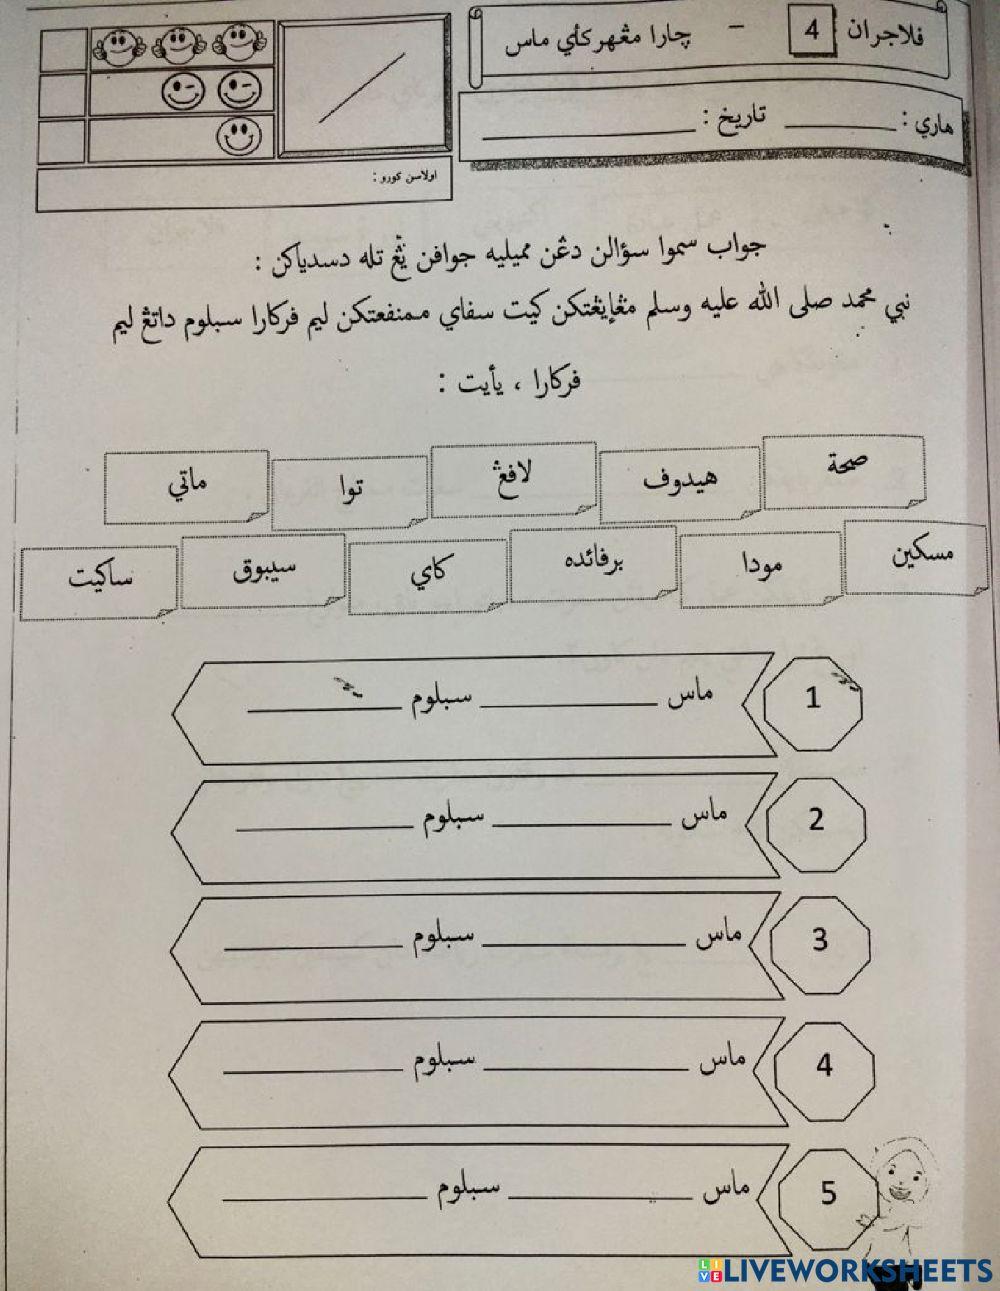 فلاجران 4 – چارا مڠهرݢاٴي ماس
هاري : ________ تاريخ : ________
اولاسن ݢورو :
جواب سموا سوٴالن دڠن مميليه جوافن يڠ تله دسدياكن :
نبي محمد صلى الله عليه وسلم مڠإيڠتكن كيت سفاي ممنفعتكن ليم فركارا سبلوم داتڠ ليم
فركارا ، يأيت :
صحة هيدوف لافڠ توا ماتي
مسكين مودا برفائده كاي سيبوق ساكيت
1 ماس ________ سبلوم ________
2 ماس ________ سبلوم ________
3 ماس ________ سبلوم ________
4 ماس ________ سبلوم ________
5 ماس ________ سبلوم ________
LIVEWORKSHEETS